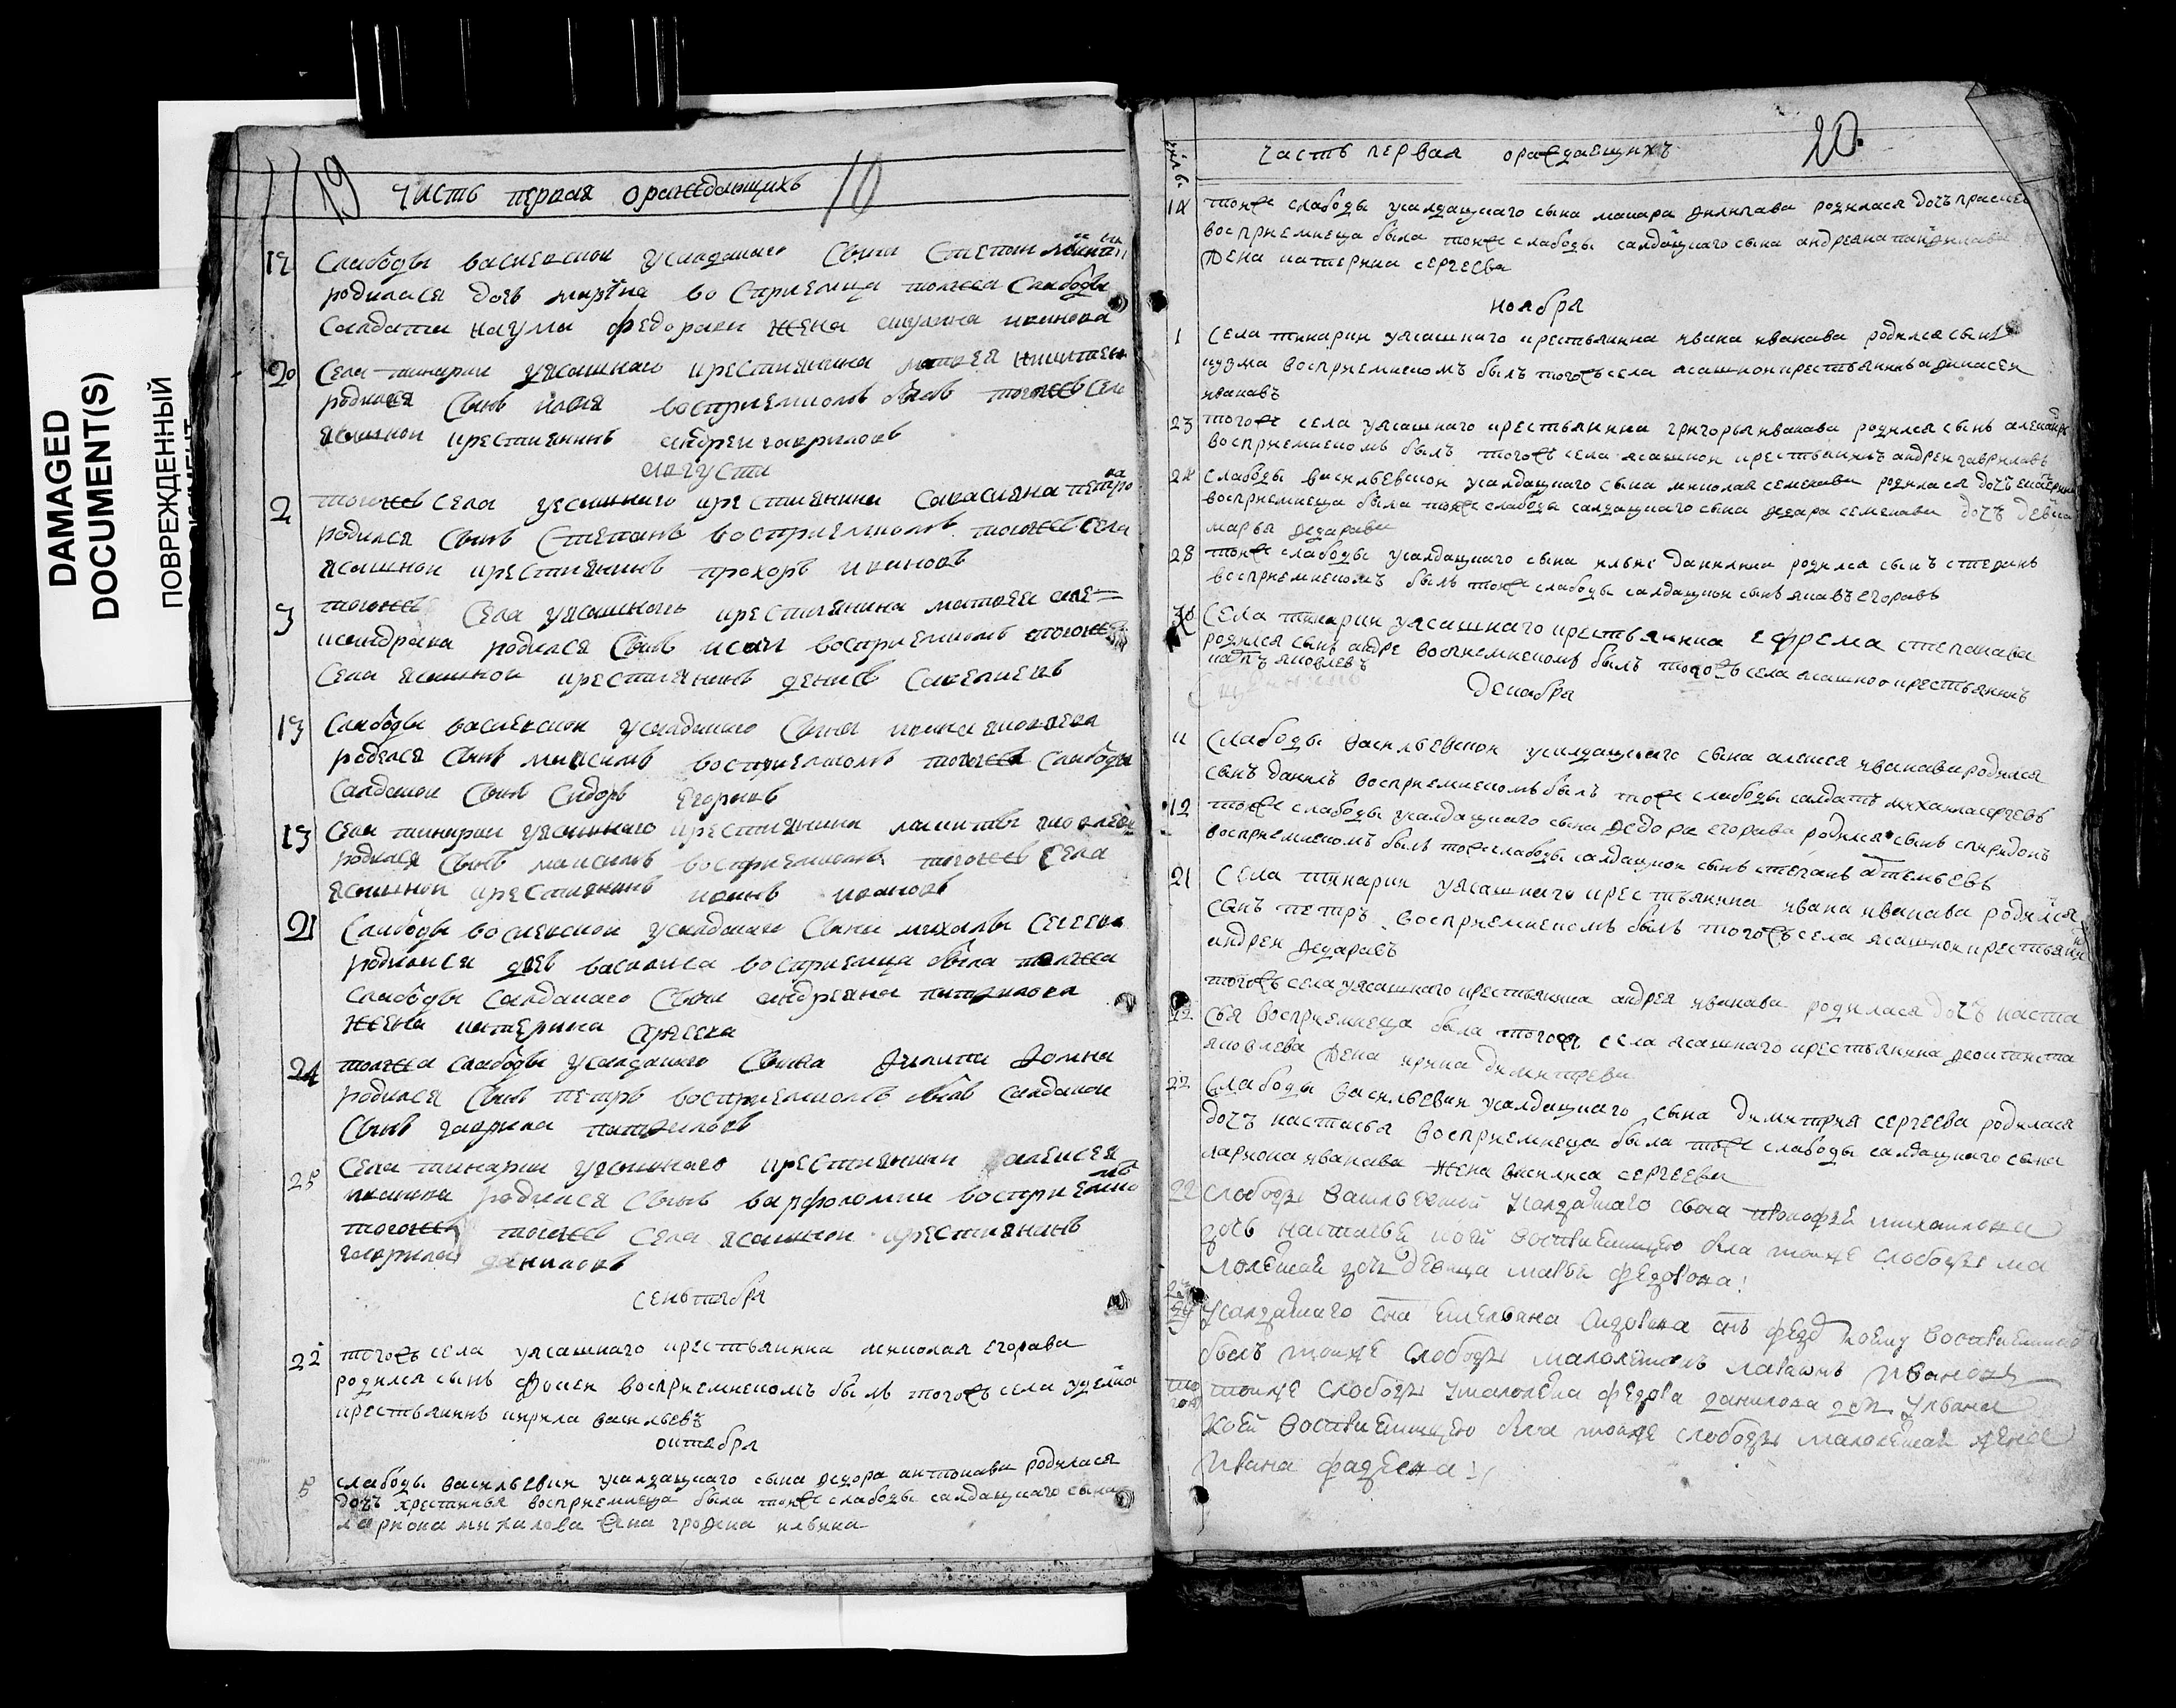 DAMAGED
DOCUMENT(S)
ПОВРЕЖДЕННЫЙ
19 часть первая ораждающихъ 10
12 Слабоды васильевскои усалдацкаго сына Степана
родилася дочь марина восприемница тоежа слабоды
салдата наума федорова жена акулина иванова
20 Села тинарки уясашнаго крестиянина матвея
родился сынъ илья восприемникомъ былъ тогожъ села
ясашнои крестиянинъ андреи гавриловъ
августа
2 тогожъ села уясашнаго крестиянина савасьяна петрова
родился сынъ Степанъ восприемникомъ тогожъ села
ясашнои крестиянинъ прохоръ ивановъ
3 тогожъ села уясашнаго крестиянина матвея але=
ксандрава родился сынъ исаи восприемникомъ тогожъ
Села ясашнои крестиянинъ денисъ савельевъ
13 Слабоды васильевскои усалдацкаго сына ивана яковлева
родился сынъ максимъ восприемникомъ тоежа слабоды
салдацкои сынъ Сидоръ Егоровъ
13 Села тинарки уясашнаго крестиянина никиты яковлева
родился сынъ максимъ восприемникомъ тогожъ села
ясашнои крестиянинъ иванъ ивановъ
21 Слабоды васильевскои усалдацкаго сына михаилы
родилася дочь василиса восприемница была тоежа
слабоды салдацкаго сына андреяна панфилова
жена катерина сергеева
24 тоежа слабоды усалдацкаго сына филипа фомина
родился сынъ петръ восприемникомъ былъ салдацкои
сынъ гаврила панфиловъ
25 Села тинарки уясашнаго крестиянина алексея
иванова родился сынъ варфоломии восприемникомъ
тогожъ тогожъ села ясашнои крестиянинъ
гаврила даниловъ
сеньтября
22 тогожъ села уясашнаго крестьянина николая егорава
родился сынъ фокеи восприемникомъ былъ тогожъ села уделнои
крестьянинъ кирила васильевъ
октября
5 слабоды васильевки усалдацкаго сына федора антонава родилася
дочъ христинья восприемница была тоежъ слабоды салдацкаго сына
лариона михалова жена графена ильина
часть первая ораждаещихъ 20.
14 тоежъ слабоды усалдацкаго сына макара филипава родилася дочъ праске
восприемница была тоежъ слабоды салдацкаго сына андреяна панфилава
жена катерина сергеева
ноября
1 Села тинарки уясашнаго крестьянина ивана иванава родился сынъ
кузма восприемникомъ былъ тогожъ села ясашнои крестьянинъ афанасеи
иванавъ
23 тогожъ села уясашнаго крестьянина григорья иванава родился сынъ александръ
восприемникомъ былъ тогожъ села ясашнои крестьянинъ андреи гаврилавъ
24 слабоды васильевскои усалдацкаго сына николая семенава родилася дочъ екатерина
восприемница была тоежъ слабоды салдацкаго сына федара семенава дочъ девица
марья федарава
28 тоежъ слабоды усалдацкаго сына ильи данилина родился сынъ стефанъ
восприемникомъ былъ тоежъ слабоды салдацкои сынъ яковъ егоравъ
30 Села тинарки уясашнаго крестьянина ефрема степанава
родился сынъ андре восприемникомъ былъ тогожъ села ясашнои крестьянинъ
яковлевъ
декабря
11 Слабоды васильевскои усалдацкаго сына алексея иванава родился
сынъ данилъ восприемникомъ былъ тоежъ слабоды салдатъ михаила сергеевъ
12 тоежъ слабоды усалдацкаго сына федора егорава родился сынъ спиридонъ
восприемникомъ былъ тоежъ слабоды салдацкои сынъ степанъ артемьевъ
21 Села тинарки уясашнаго крестьянина ивана иванава родился
сынъ петръ восприемникомъ былъ тогожъ села ясашнои крестьянинъ
андреи федаравъ
тогожъ села уясашнаго крестьянина андрея иванава родилася дочъ наста
22 сья восприемница была тогожъ села ясашнаго крестьянина феоктиста
яковлева жена ирина димитреева
22 Слабоды васильевки усалдацкаго сына димитрия сергеева родилася
дочъ настасья восприемница была тоежъ слабоды салдацкаго сына
лариона иванава жена василиса сергеева
22 слободы васильевской усалдацкаго сына прокофья михаилова
дочь настасья коей восприемницею была тоиже слободы ма
лолетнаи дочь девица марья федорова!
усалдацкаго сна емельяна сидорова снъ федо коему восприемником
былъ тоиже слободы малолетокъ иванов
тоиже слободы умалолетка федора данилова дочь ульяна
коей восприемницею была тоиже слободы малолетнаи
ивана фадеева!